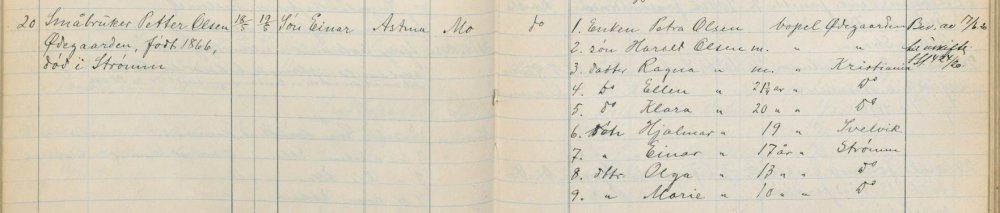 20 Småbruker Petter Olsen 18/5 19/5 Søn Einar Astma Mo do 1. Enken Petra Olsen bopel Ødegaarden Bev. av
Ødegaarden, født 1866, 2. søn Harald Olsen m. " "
død i Strømm 3. datter Ragna " m. " Kristiania
4. Do Ellen " 21½ år " Do
5. do Klara " 20 " " Do
6. søn Hjalmar " 19 " Svelvik
7. " Einar " 17 år " Strømm
8. dttr. Olga " 13 " " Do
9. " Marie " 10 " " Do